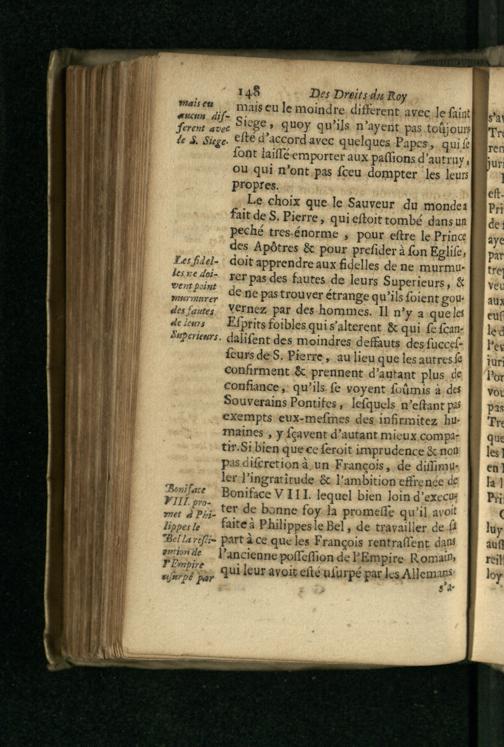 148 Des Droits du Roy
mais eu le moindre different avec le saint
Siege, quoy qu'ils n'ayent pas toûjours
esté d'accord avec quelques Papes, qui se
sont laissé emporter aux passions d'autruy,
ou qui n'ont pas sceu dompter les leurs
propres.
Le choix que le Sauveur du monde a
fait de S. Pierre, qui estoit tombé dans un
peché tres-énorme, pour estre le Prince
des Apôtres & pour presider à son Eglise,
doit apprendre aux fidelles de ne murmu-
rer pas des fautes de leurs Superieurs, &
de ne pas trouver étrange qu'ils soient gou-
vernez par des hommes. Il n'y a que les
Esprits foibles qui s'alterent & qui se scan-
dalisent des moindres deffauts des succes-
seurs de S. Pierre, au lieu que les autres se
confirment & prennent d'autant plus de
confiance, qu'ils se voyent soûmis à des
Souverains Pontifes, lesquels n'estant pas
exempts eux-mesmes des infirmitez hu-
maines, y sçavent d'autant mieux compa-
tir. Si bien que ce seroit imprudence & non
pas discretion à un François, de dissimu-
ler l'ingratitude & l'ambition effrenée de
Boniface VIII. lequel bien loin d'execu-
ter de bonne foy la promesse qu'il avoit
faite à Philippes le Bel, de travailler de sa
part à ce que les François rentrassent dans
l'ancienne possession de l'Empire Romain,
qui leur avoit esté usurpé par les Allemans
s'a-
mais eu
aucun dif-
ferent avec
le S. Siege.
Les fidel-
les ne doi-
vent point
murmurer
des fautes
de leurs
Superieurs.
Boniface
VIII. pro-
met à Phi-
lippes le
Bel la resti-
tution de
l'Empire
usurpé par